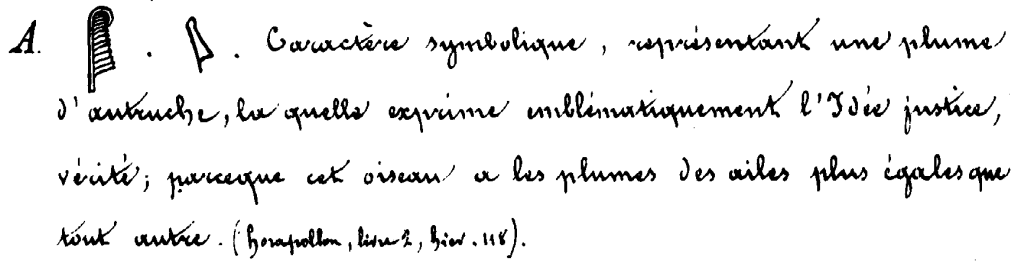 A. . . Caractère symbolique, représentant une plume
d'autruche, la quelle exprime emblématiquement l'Idée justice,
vérité; parceque cet oiseau a les plumes des ailes plus égales que
tout autre. (horapollon, livre 2, hier. 118).